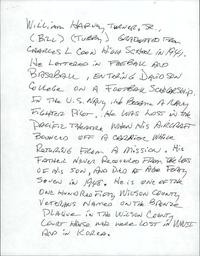 William Harvey Turner, Jr.
(Bill) (Tubby) graduated from
Charles L. Coon High School in 1941.
He lettered in football and
baseball, entering Davidson
College on a football scholarship.
In the U.S. Navy, he became a Navy
fighter pilot. He was lost in the
Pacific Theatre when his aircraft
bounced off a carrier while
returning from a mission. His
father never recovered from the loss
of his son, and died at age fifty
seven in 1948. He is one of the
one hundred fifty Wilson County
veterans named on the bronze
plaque in the Wilson County
Court House who were lost in WWII
and in Korea.